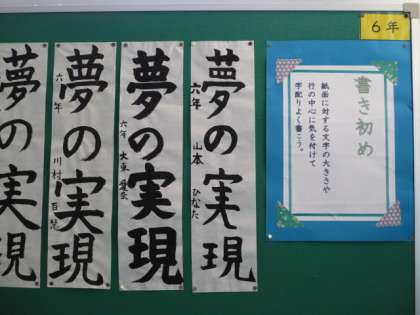 6年
書き初め
紙面に対する文字の大きさや
行の中心に気を付けて
字配りよく書こう。
夢の実現
六年 山本 ひなた
夢の実現
六年 大東
夢の実現
六年 川村 百
夢の実現